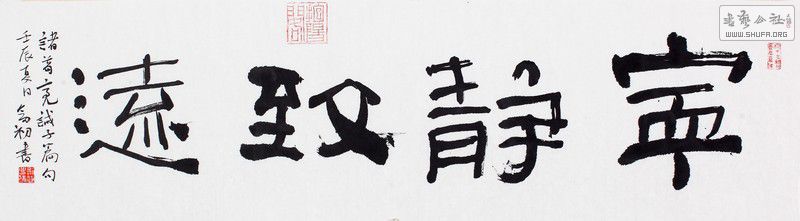 寧静致遠
諸葛亮誡子篇句
壬辰夏日初書
書藝公社
WWW.SHUFA.ORG